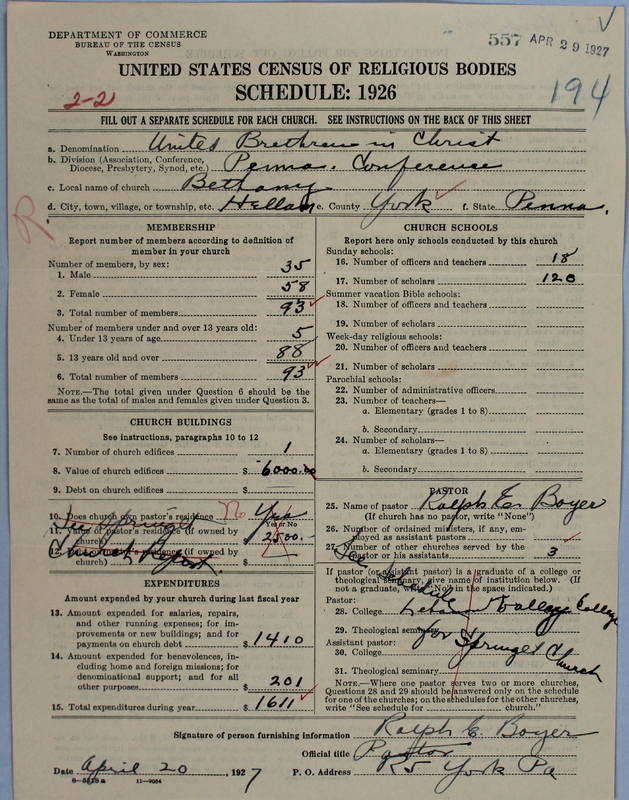 DEPARTMENT OF COMMERCE
BUREAU OF THE CENSUS
WASHINGTON
557 APR 29 1927
UNITED STATES CENSUS OF RELIGIOUS BODIES
SCHEDULE: 1926
2-2
194
FILL OUT A SEPARATE SCHEDULE FOR EACH CHURCH. SEE INSTRUCTIONS ON THE BACK OF THIS SHEET
a. Denomination United Brethren in Christ
b. Division (Association, Conference, Diocese, Presbytery, Synod, etc.) Penna. Conference
c. Local name of church Bethany
d. City, town, village, or township, etc. Hellam e. County York f. State Penna.
R
MEMBERSHIP
Report number of members according to definition of member in your church
Number of members, by sex:
1. Male 35
2. Female 58
3. Total number of members 93
Number of members under and over 13 years old:
4. Under 13 years of age 5
5. 13 years old and over 88
6. Total number of members 93
NOTE.—The total given under Question 6 should be the same as the total of males and females given under Question 3.
CHURCH BUILDINGS
See instructions, paragraphs 10 to 12
7. Number of church edifices 1
8. Value of church edifices $ 6000.00
9. Debt on church edifices $
10. Does church own pastor's residence No Yes
Yes or No
11. Value of pastor's residence (if owned by church) $ 2500.-
12. Debt on pastor's residence (if owned by church) $
See Springet Church Report.
EXPENDITURES
Amount expended by your church during last fiscal year
13. Amount expended for salaries, repairs, and other running expenses; for improvements or new buildings; and for payments on church debt $ 1410
14. Amount expended for benevolences, including home and foreign missions; for denominational support; and for all other purposes $ 201
15. Total expenditures during year $ 1611
CHURCH SCHOOLS
Report here only schools conducted by this church
Sunday schools:
16. Number of officers and teachers 18
17. Number of scholars 120
Summer vacation Bible schools:
18. Number of officers and teachers
19. Number of scholars
Week-day religious schools:
20. Number of officers and teachers
21. Number of scholars
Parochial schools:
22. Number of administrative officers
23. Number of teachers—
a. Elementary (grades 1 to 8)
b. Secondary
24. Number of scholars—
a. Elementary (grades 1 to 8)
b. Secondary
PASTOR
25. Name of pastor Ralph E. Boyer
(If church has no pastor, write "None")
26. Number of ordained ministers, if any, employed as assistant pastors
27. Number of other churches served by the pastor or his assistant 3
If pastor (or assistant pastor) is a graduate of a college or theological seminary, give name of institution below. (If not a graduate, write "No" in the space indicated.)
Pastor:
28. College Lebanon Valley College
29. Theological seminary
Assistant pastor:
30. College
31. Theological seminary
See for Springet Church
NOTE.—Where one pastor serves two or more churches, Questions 28 and 29 should be answered only on the schedule for one of the churches; on the schedules for the other churches, write "See schedule for ........ church."
Signature of person furnishing information Ralph E. Boyer
Official title Pastor
Date April 20, 1927 P. O. Address R5 York Pa
8-5518a 11-9054